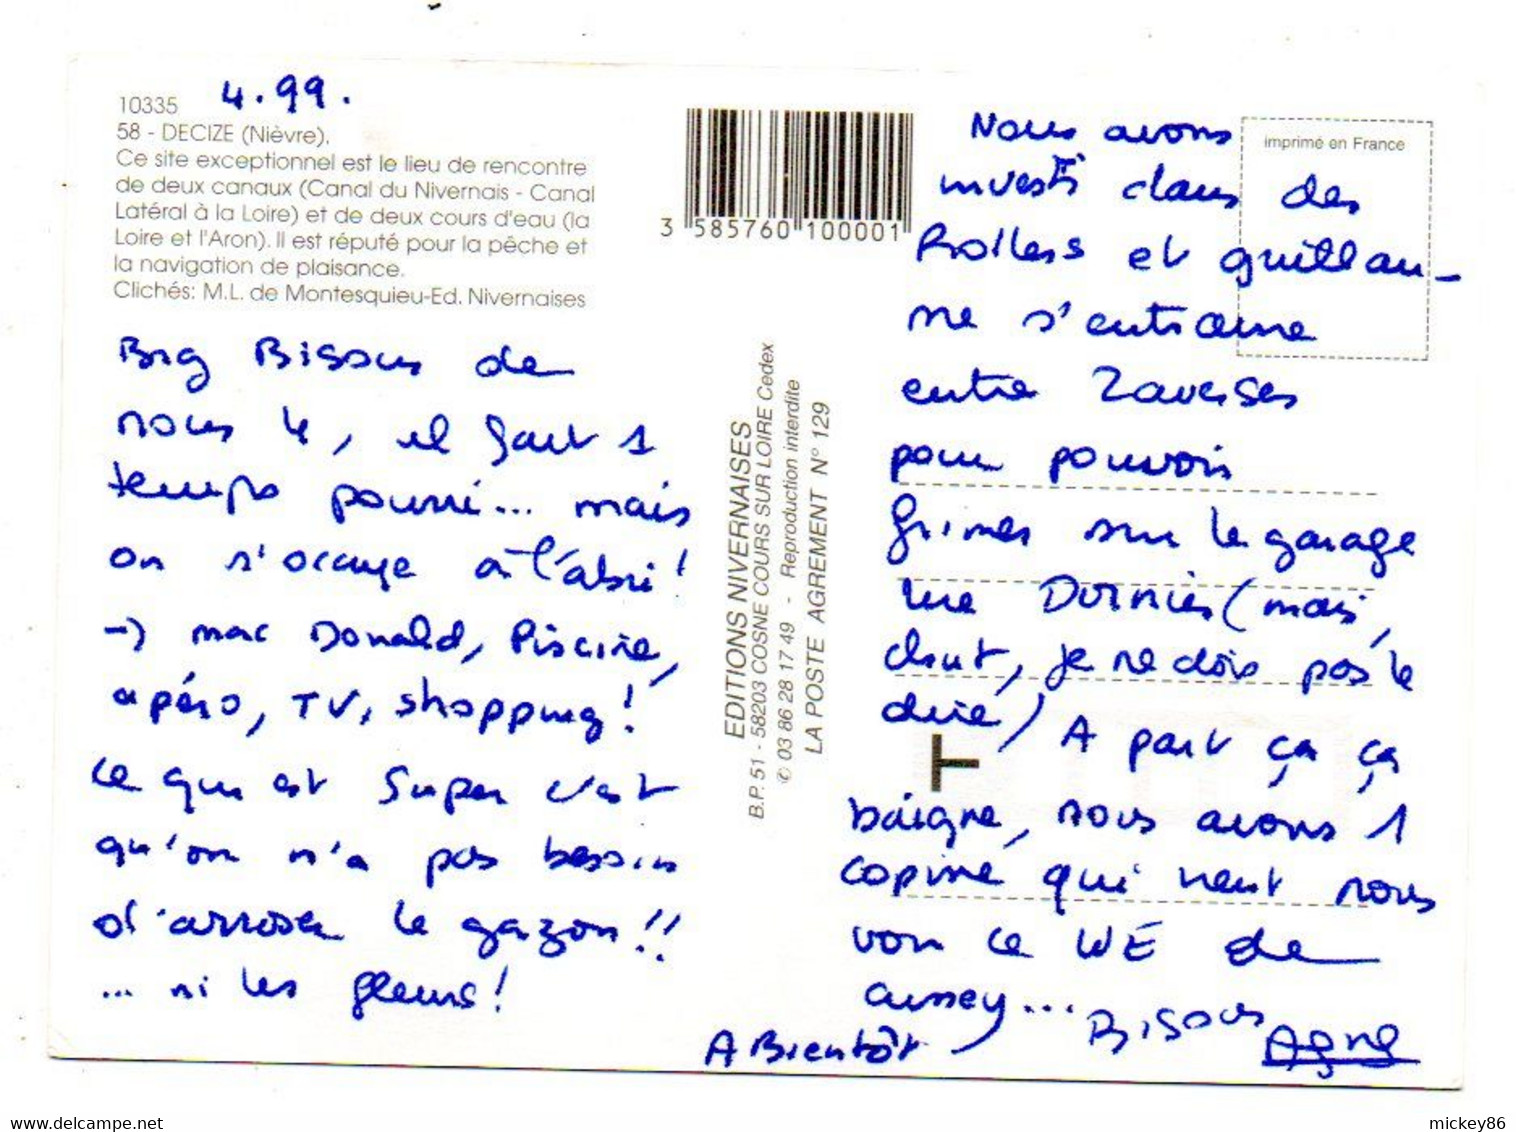 4.99.
10335
58 - DECIZE (Nièvre).
Ce site exceptionnel est le lieu de rencontre
de deux canaux (Canal du Nivernais - Canal
Latéral à la Loire) et de deux cours d'eau (la
Loire et l'Aron). Il est réputé pour la pêche et
la navigation de plaisance.
Clichés: M.L. de Montesquieu-Ed. Nivernaises
Big Bisous de
nous 4, il fait 1
temps pourri... mais
on s'occupe à l'abri!
→ mac Donald, Piscine,
apéro, TV, shopping!
ce qui est Super c'est
qu'on n'a pas besoin
d'arroser le gazon!!
... ni les fleurs!
3 585760 100001
EDITIONS NIVERNAISES
B.P. 51 - 58203 COSNE COURS SUR LOIRE Cedex
✆ 03 86 28 17 49 - Reproduction interdite
LA POSTE AGREMENT N° 129
T
imprimé en France
Nous avons
investi dans des
Rollers et guillau-
me s'entraine
entre 2 averses
pour pouvoir
frimer sur le garage
rue (mais,
chut, je ne dois pas le
dire) A part ça ça
baigne, nous avons 1
copine qui vient nous
voir ce WE de
... Bisous
A Bientôt
mickey86